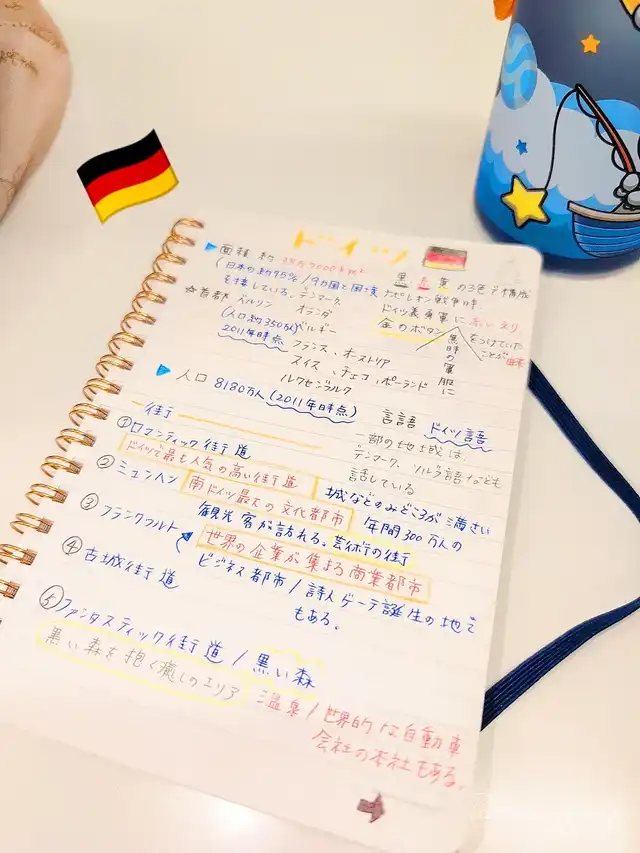 ドイツ
▶面積 約35万7000km²
(日本の約95%/9カ国と国境
を接している。デンマーク、
☆首都 ベルリン オランダ
(人口約350万人)ベルギー
2011年時点 フランス、オーストリア
スイス、チェコ、ポーランド
ルクセンブルク
黒 赤 黄の3色で構成
ナポレオン戦争時、
ドイツ義勇軍に赤いえり
金のボタン をつけていた
黒 ことが由来
時の軍服に
▶人口 8180万人(2011年時点)
言語 ドイツ語
一部の地域は、
デンマーク、ソルブ語なども
話している
街道
①ロマンティック街道
ドイツで最も人気の高い街道 城などのみどころが満さい
②ミュンヘン 南ドイツ最大の文化都市 年間300万人の
観光客が訪れる。芸術の街
③フランクフルト 世界の企業が集まる商業都市
ビジネス都市/詩人ゲーテ誕生の地で
もある。
④古城街道
⑤ファンタスティック街道/黒い森
黒い森を抱く癒しのエリア
温泉/世界的な自動車
会社の本社もある。